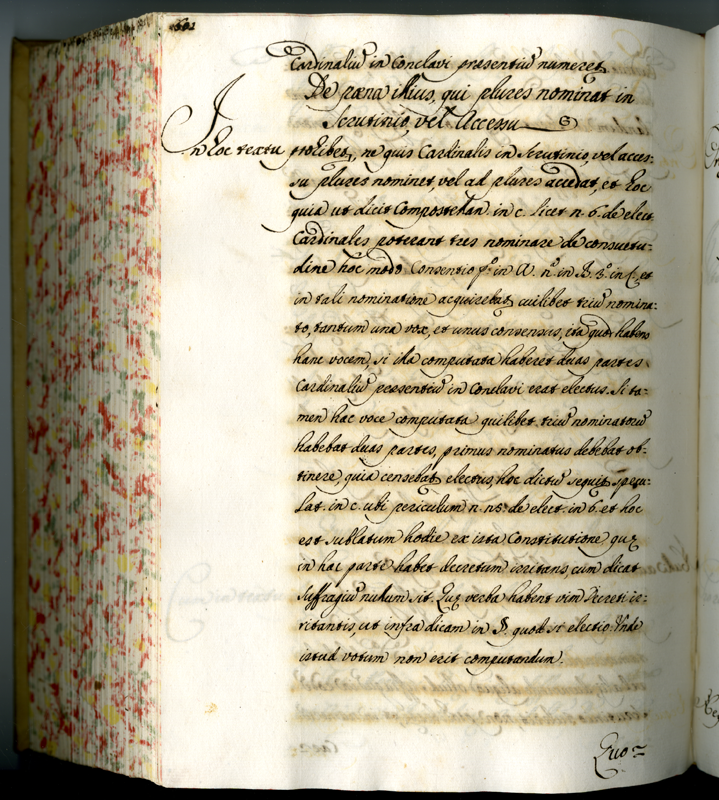 Cardinaliũ in Conclavi præsentiũ numeret
De pæna illius, qui plures nominat in
Scrutinio, vel Accessu
In hoc textu prohibet, ne quis Cardinalis in Scrutinio, vel acces-
su plures nominet, vel ad plures accedat, et hoc
quia ut dicit Compostellan. in c. licet n. 6. de elect.
Cardinales poterant tres nominare de consuetu-
dine hoc modo Consentio in A. in B. in C. et
in tali nominatione acquirebat cuilibet triũ nomina-
to, tantum una vox, et unus consensus, ita quod habens
hanc vocem, si illa computata haberet duas partes
Cardinaliũ præsentiũ in Conclavi erat electus. Si ta-
men hac voce computata quilibet triũ nominatorũ
habebat duas partes, primus nominatus debebat ob-
tinere, quia censebat electus, hoc dictũ sequit specu-
lat. in c. ubi periculum n. de elect. in 6. et hoc
est sublatum hodie ex ista Constitutione quæ
in hac parte habet decretum irritans, cum dicat
suffragiũ nullum sit. Quæ verba habent vim Decreti ir-
ritantis, ut infra dicam in §. quod si electio. Unde
istud votum non erit computandum.
Quo-